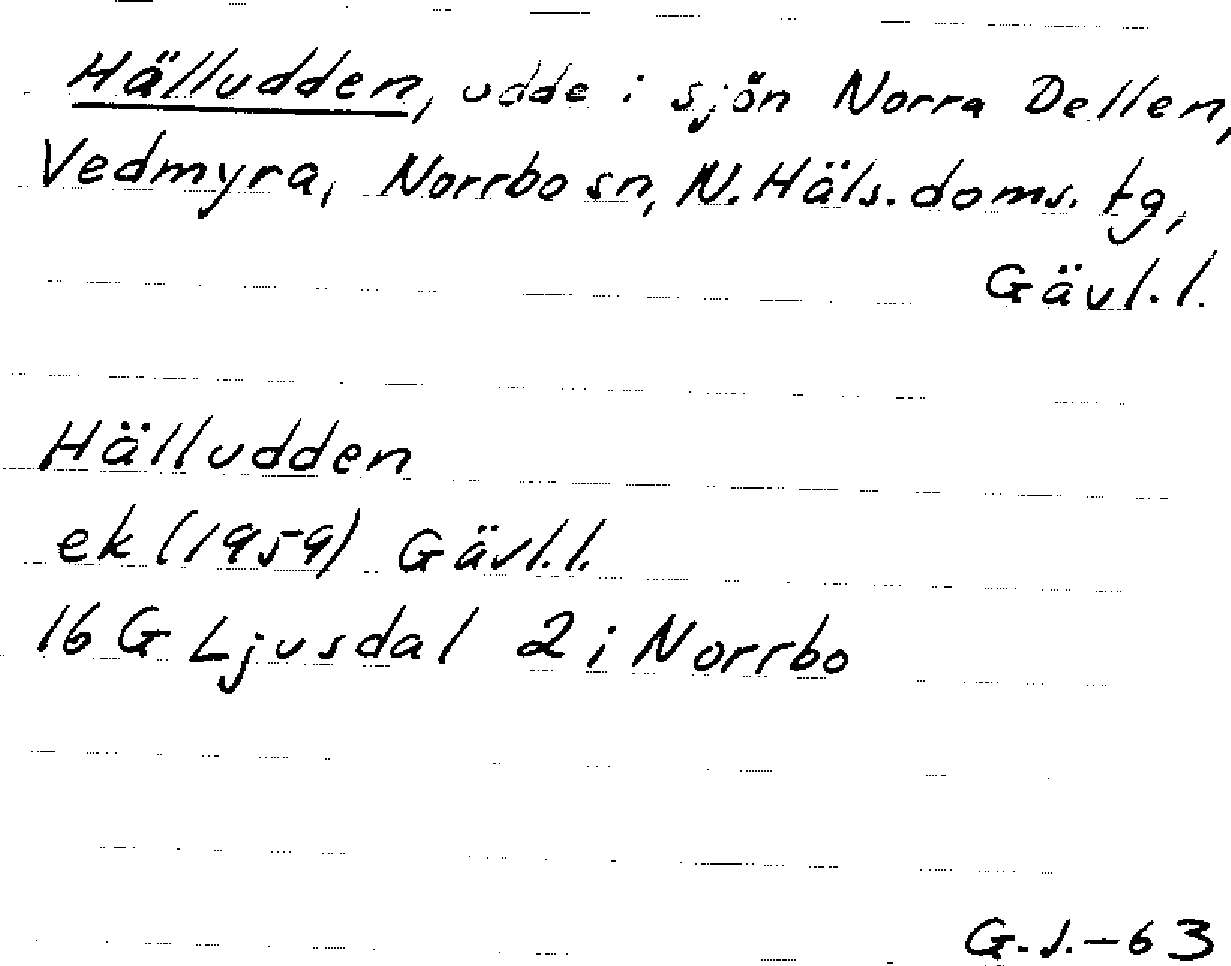 Hälludden, udde i sjön Norra Dellen,
Vedmyra, Norrbo sn, N. Häls. doms. tg,
Gävl. l.
Hälludden
ek (1959) Gävl. l.
16 G Ljusdal 2 i Norrbo
G. S. - 63